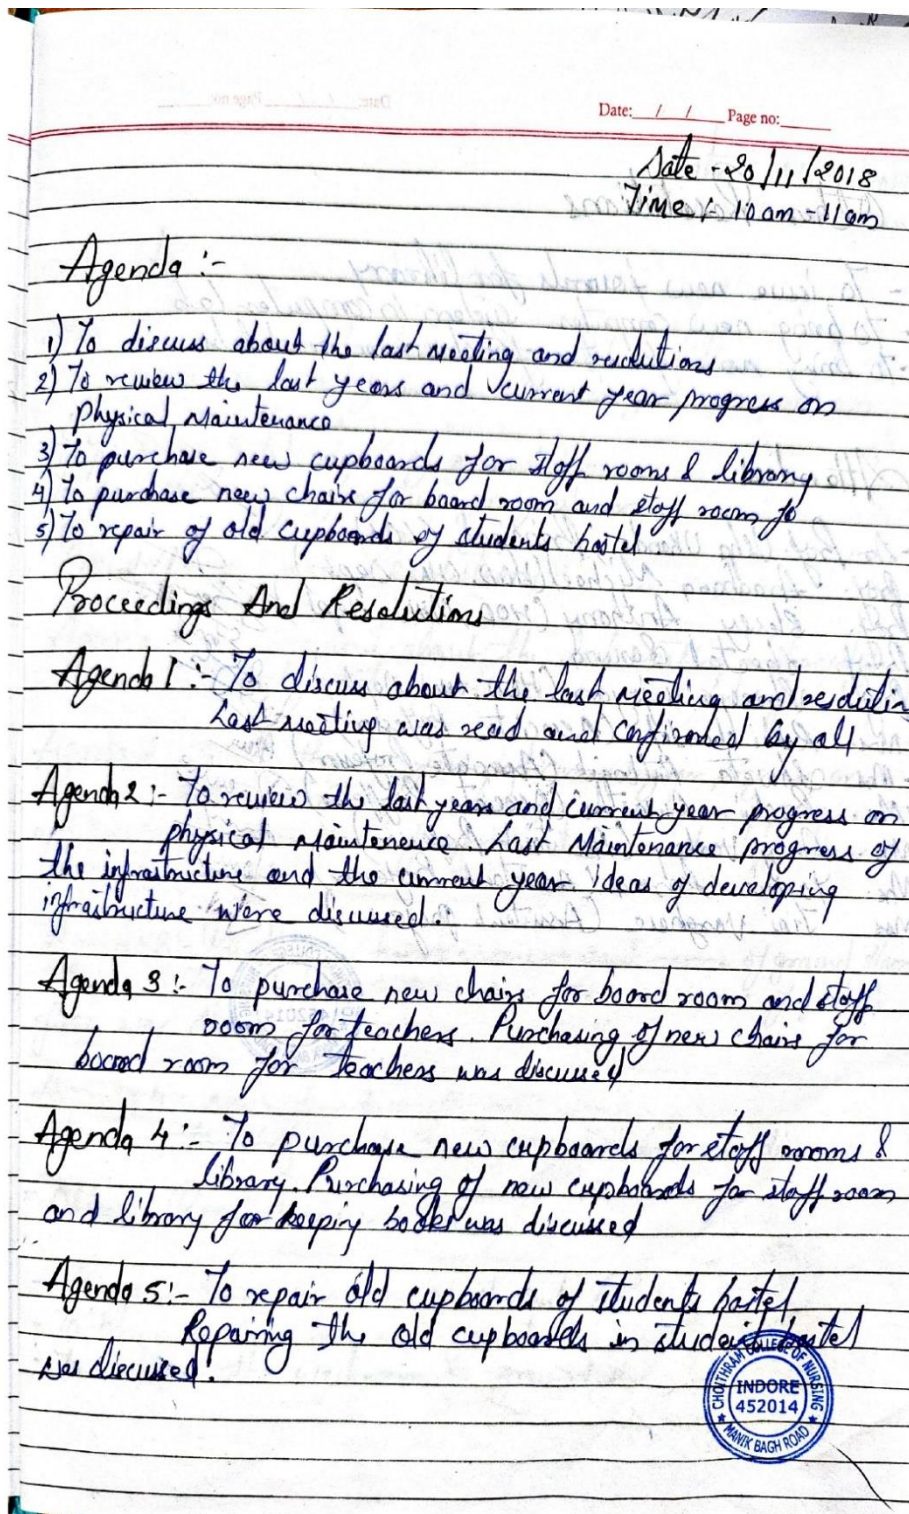 Date: / / Page no:
Date - 20/11/2018
Time :- 10 am - 11 am
Agenda :-
1) To discuss about the last meeting and resolutions
2) To review the last years and current year progress on
Physical Maintenance
3) To purchase new cupboards for staff rooms & library
4) To purchase new chairs for board room and staff room fo
5) To repair of old cupboards of students hostel
Proceedings And Resolutions
Agenda 1 :- To discuss about the last meeting and resolution
Last meeting was read and confirmed by all
Agenda 2 :- To review the last years and current year progress on
physical Maintenence. Last Maintenance progress of
the infrastructure and the current year ideas of developing
infrastructure were discussed.
Agenda 3 :- To purchase new chairs for board room and staff
room for teachers. Purchasing of new chairs for
board room for teachers was discussed
Agenda 4 :- To purchase new cupboards for staff rooms &
library. Purchasing of new cupboards for staff room
and library for keeping books was discussed
Agenda 5 :- To repair old cupboards of students hostel
Repairing the old cupboards in student hostel
was discussed.
CHOITHRAM COLLEGE OF NURSING
INDORE
452014
MANIK BAGH ROAD